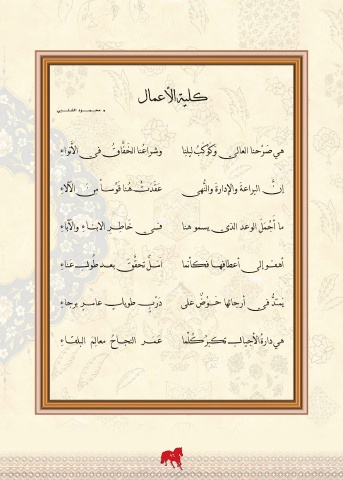 كلية الأعمال
د. محمود الحليبي
هي صرْحنا العالي وكوكبُ ليلنا وشراعُنا الخفَّاقُ في الأنواءِ
إنَّ البراعةَ والإدارةَ والنُّهى عقدَتْ هُنا قوْساً منَ الآلاءِ
ما أجْملَ الوعد الذي يسمو هنا في خاطرِ الأبناءِ والآباءِ
أهفو إلى أعطافها فكأنما أملٌ تحقَّقَ بعد طُولِ عناءِ
يمتدُّ في أرجائها حوْضٌ على دَرْبٍ طويلٍ عامرٍ برجاءِ
هي دارةُ الأجيالِ تكبرُ كُلَّما عَمَر النجاحُ معالمَ البلغاءِ